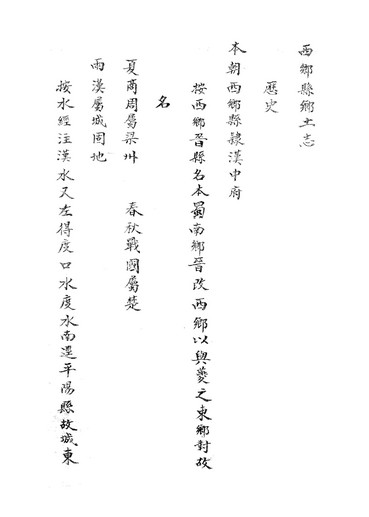 西鄉縣鄉土志
歷史
本朝西鄉縣隸漢中府
按西鄉晉縣名本蜀南鄉晉改西鄉以與夔之東鄉對故
名
夏商周屬梁州　春秋戰國屬楚
兩漢屬城固地
按水經注漢水又左得度口水度水南逕平陽縣故城東